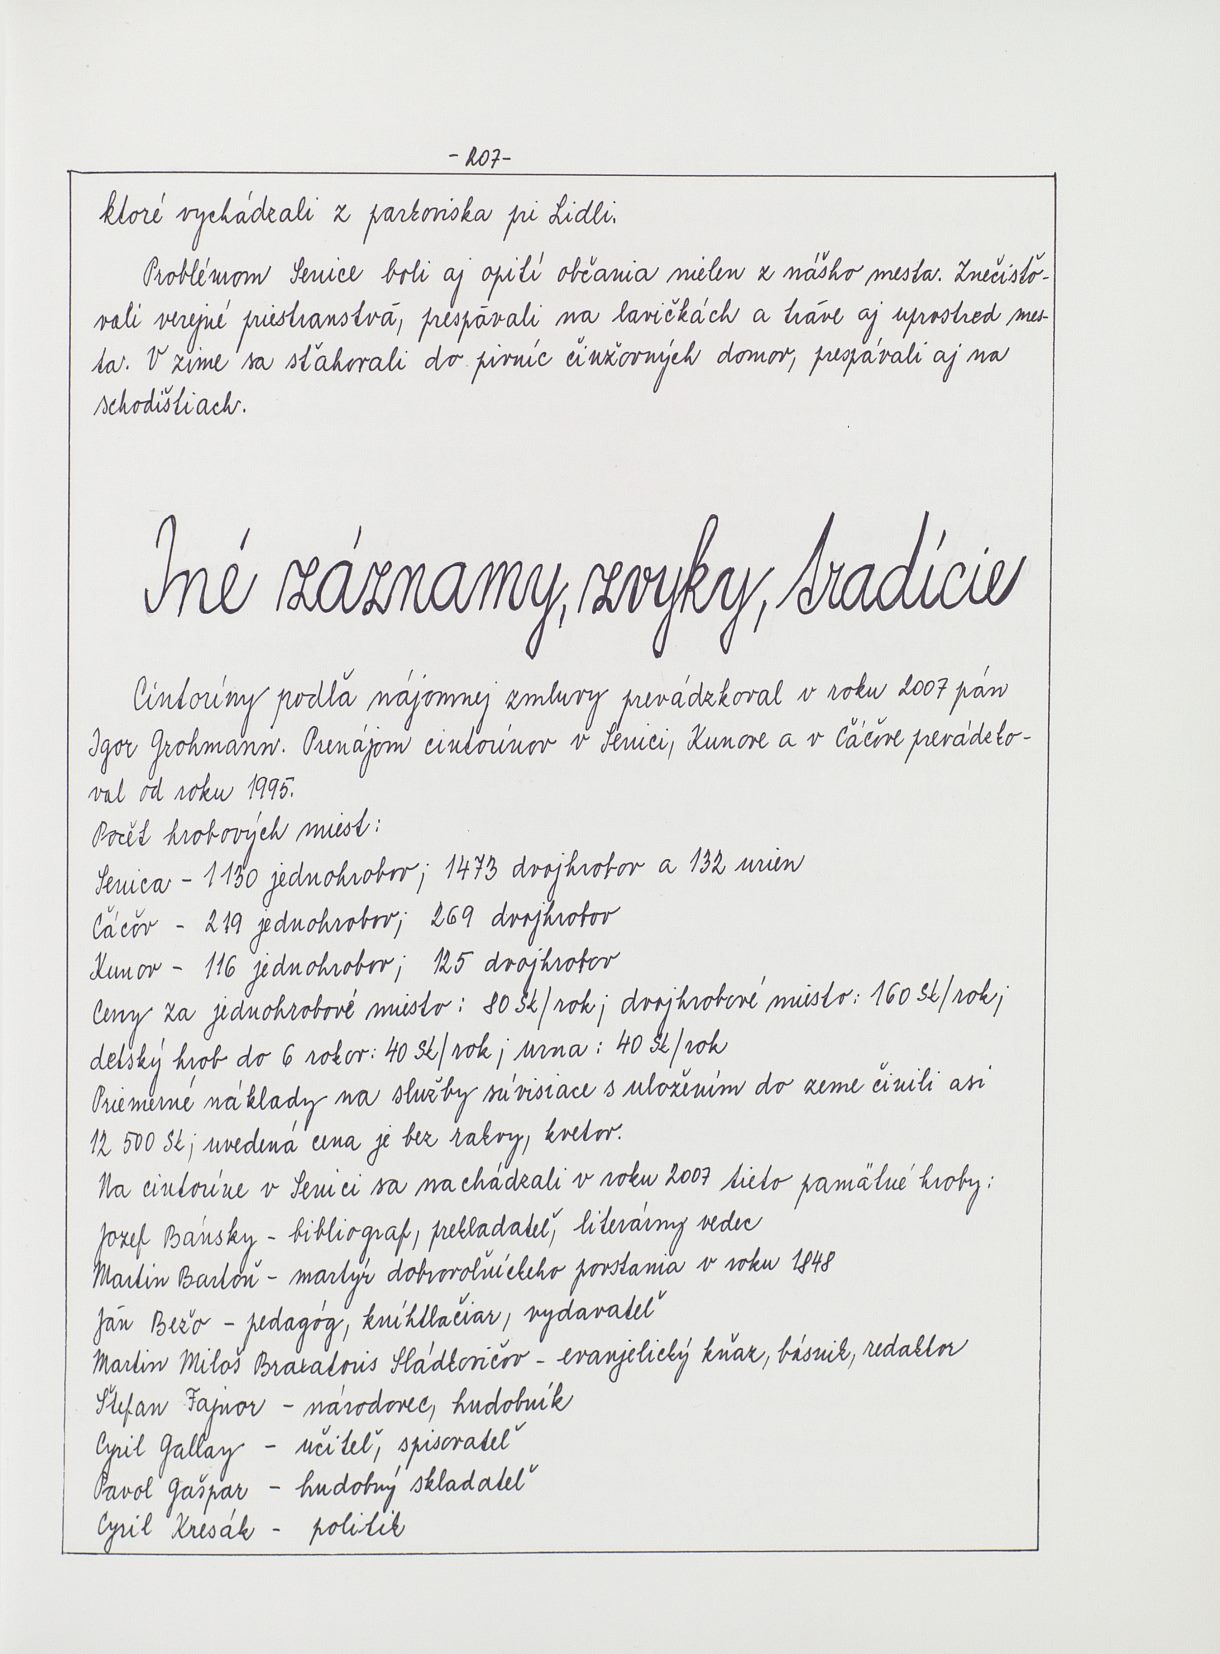 -207-
ktoré vychádzali z parkoviska pri Lidli.
Problémom Senice boli aj opití občania nielen z nášho mesta. Znečisťo-
vali verejné priestranstvá, prespávali na lavičkách a tráve aj uprostred mes-
ta. V zime sa sťahovali do pivníc činžovných domov, prespávali aj na
schodištiach.
Iné záznamy, zvyky, tradície
Cintoríny podľa nájomnej zmluvy prevádzkoval v roku 2007 pán
Igor Grohmann. Prenájom cintorínov v Senici, Kunove a v Čáčove prevádzko-
val od roku 1995.
Počet hrobových miest:
Senica - 1130 jednohrobov; 1473 dvojhrobov a 132 urien
Čáčov - 219 jednohrobov; 269 dvojhrobov
Kunov - 116 jednohrobov; 125 dvojhrobov
Ceny za jednohrobové miesto: 80 Sk/rok; dvojhrobové miesto: 160 Sk/rok;
detský hrob do 6 rokov: 40 Sk/rok; urna: 40 Sk/rok
Priemerné náklady na služby súvisiace s uložením do zeme činili asi
12 500 Sk; uvedená cena je bez rakvy, kvetov.
Na cintoríne v Senici sa nachádzali v roku 2007 tieto pamätné hroby:
Jozef Bánsky - bibliograf, prekladateľ, literárny vedec
Martin Bartoň - martýr dobrovoľníckeho povstania v roku 1848
Ján Bežo - pedagóg, kníhtlačiar, vydavateľ
Martin Miloš Braxatoris Sládkovičov - evanjelický kňaz, básnik, redaktor
Štefan Fajnor - národovec, hudobník
Cyril Gallay - učiteľ, spisovateľ
Pavol Gašpar - hudobný skladateľ
Cyril Kresák - politik